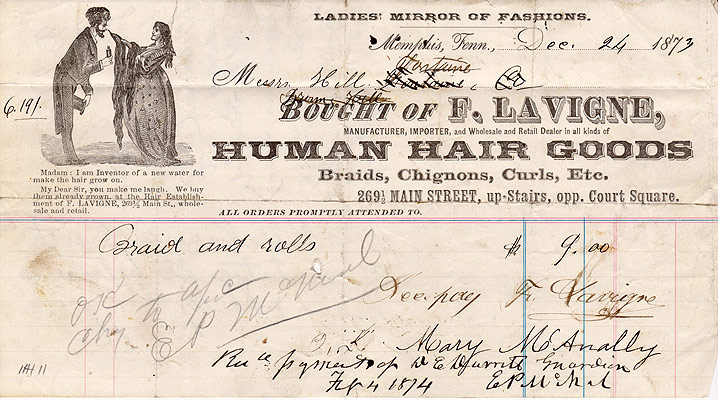 LADIES' MIRROR OF FASHIONS.
Memphis, Tenn., Dec. 24 1873
Fontaine
Messrs Hill & Co
6.191.
BOUGHT OF F. LAVIGNE,
MANUFACTURER, IMPORTER, and Wholesale and Retail Dealer in all kinds of
HUMAN HAIR GOODS
Braids, Chignons, Curls, Etc.
269½ MAIN STREET, up-Stairs, opp. Court Square.
Madam: I am Inventor of a new water for
make the hair grow on.
My Dear Sir, you make me laugh. We buy
them already grown, at the Hair Establish-
ment of F. LAVIGNE, 269½ Main St., whole-
sale and retail.
ALL ORDERS PROMPTLY ATTENDED TO.
Braid and rolls $ 9.00
OK to a/c
Chg. E P McNeal
Rec pay F. Lavigne
Mary McAnally
Rec payment of D E Guardian
Feb 4 1874 E P McNeal